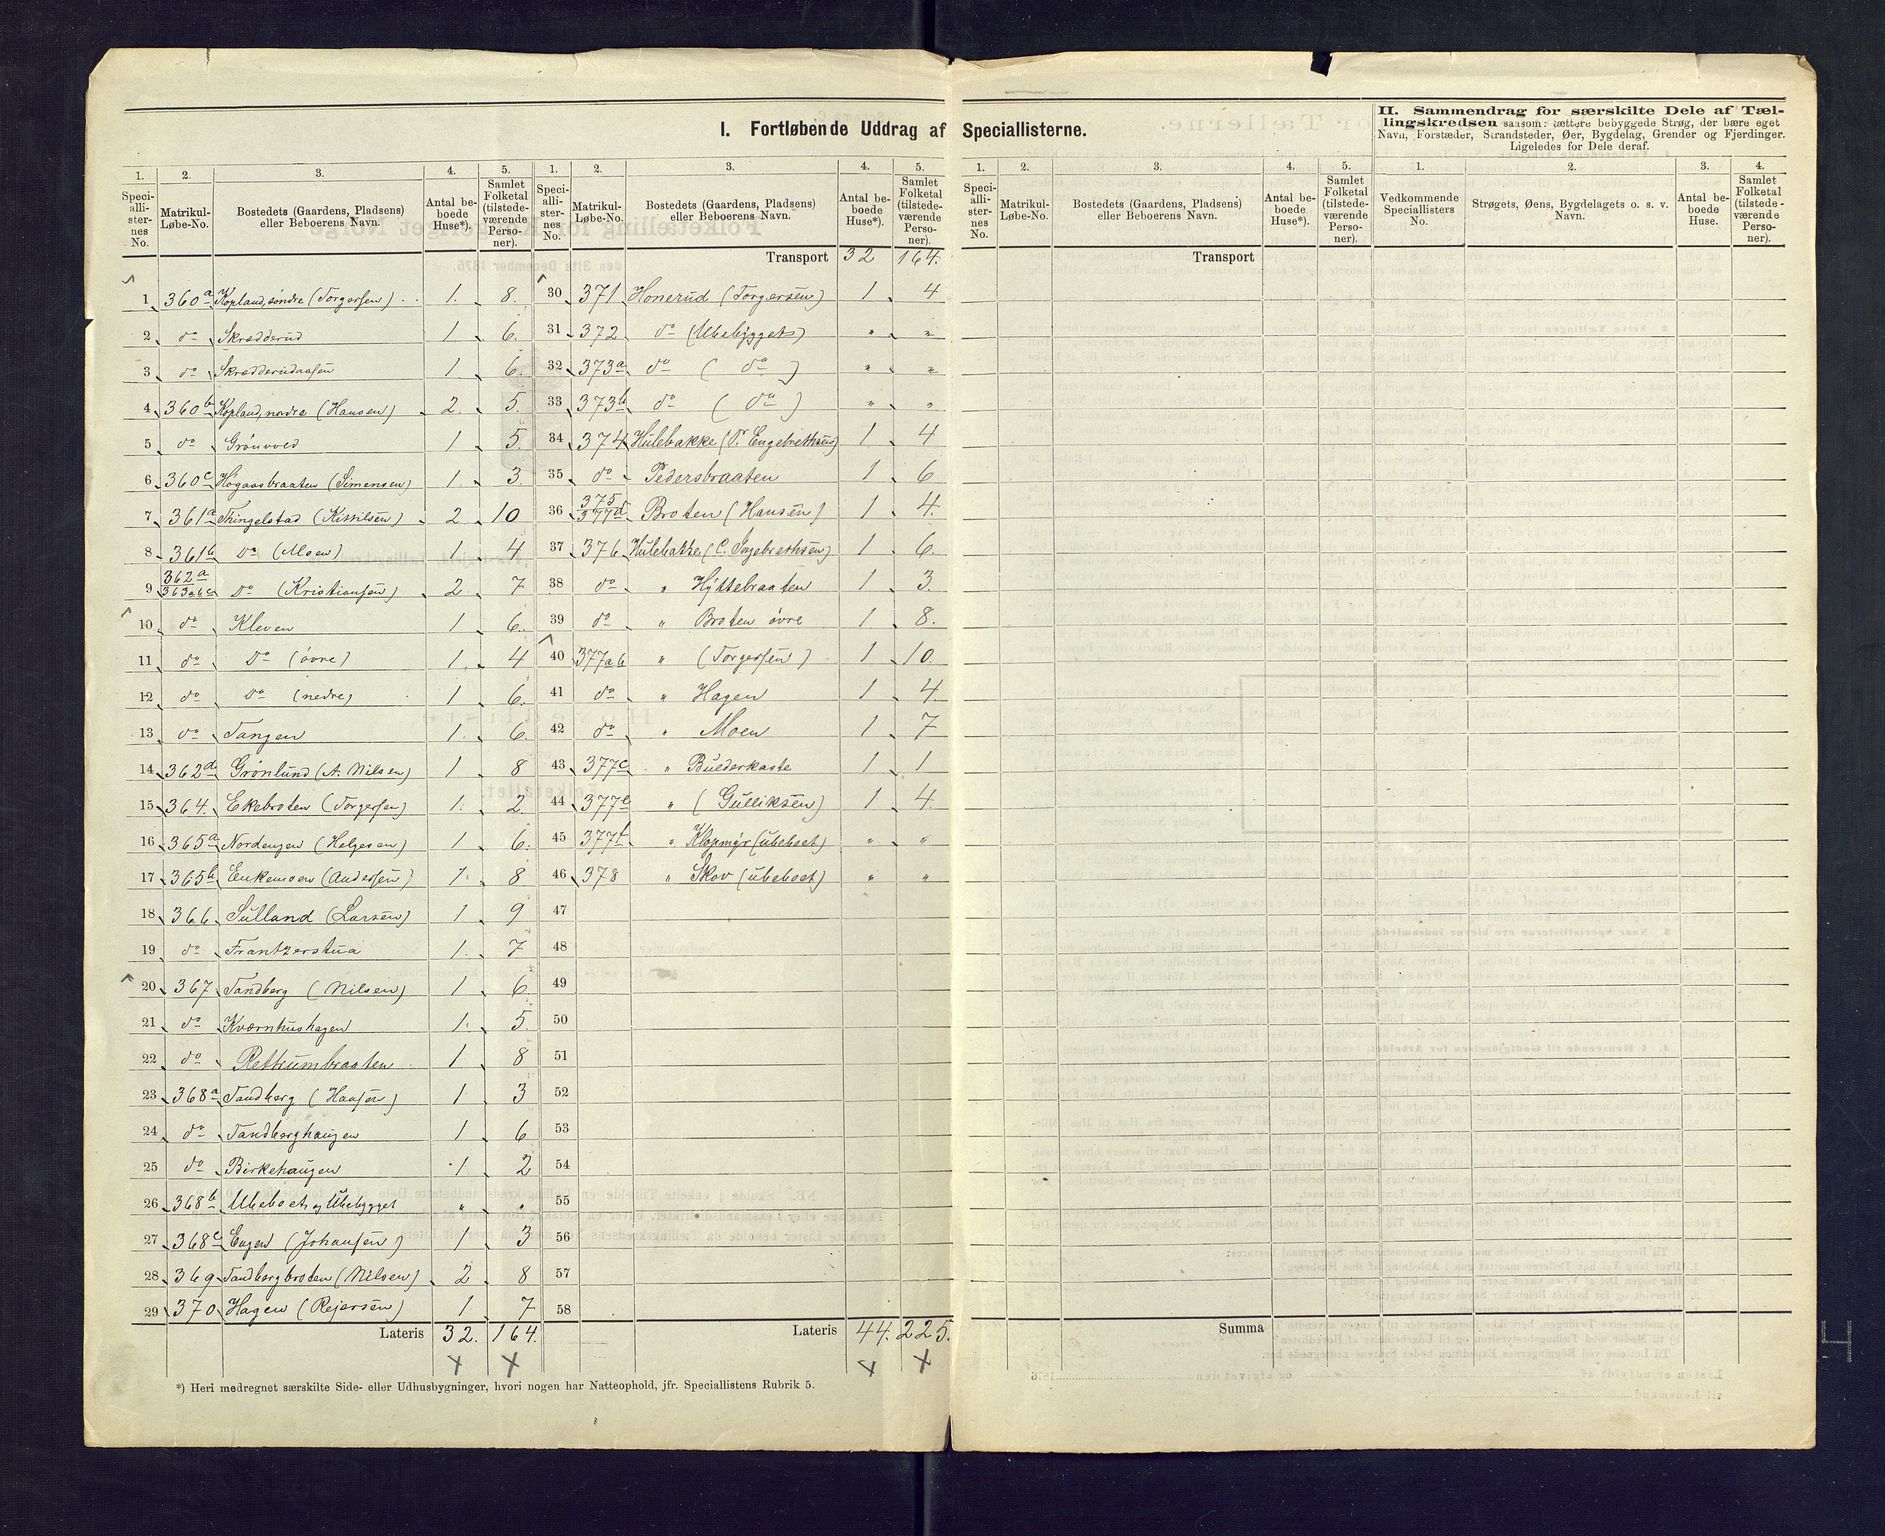 I. Fortløbende Uddrag af Speciallisterne.
II. Sammendrag for særskilte Dele af Tæl-
lingskredsen saasom: tættere bebyggede Strøg, der bære eget
Navn, Forstæder, Strandsteder, Øer, Bygdelag, Grender og Fjerdinger.
Ligeledes for Dele deraf.
1. 2. 3. 4. 5. 1. 2. 3. 4. 5. 1. 2. 3. 4. 5. 1. 2. 3. 4.
Speci-allister-nes No. Matrikul-Løbe-No. Bostedets (Gaardens, Pladsens) eller Beboerens Navn. Antal beboede Huse*). Samlet Folketal (tilstedeværende Personer).
Speci-allister-nes No. Matrikul-Løbe-No. Bostedets (Gaardens, Pladsens) eller Beboerens Navn. Antal beboede Huse*). Samlet Folketal (tilstedeværende Personer).
Speci-allister-nes No. Matrikul-Løbe-No. Bostedets (Gaardens, Pladsens) eller Beboerens Navn. Antal beboede Huse*). Samlet Folketal (tilstedeværende Personer).
Vedkommende Speciallisters No. Strøgets, Øens, Bygdelagets o. s. v. Navn. Antal beboede Huse. Samlet Folketal (tilstedeværende Personer).
1 360a Kopland, søndre (Torgersen) 1. 8.
2 do Skrædderud 1 6.
3 do Skrædderudaasen 1. 6.
4 360b Kopland, nordre (Hansen) 2. 5.
5 do Grønvold 1 5.
6 360c Høgaasbraaten (Simensen) 1. 3.
7 361a Thingelstad (Kittilsen) 2 10
8 361b Do (Moen) 1. 4
9 362a 363abc Do (Kristiansen) 2. 7
10 do Kleven 1 6.
11 do Do (øvre) 1. 4
12 do Do (nedre) 1 6.
13 do Tangen 1. 6.
14 362d Grønlund (A. Nilsen) 1 8
15 364. Ekebroten (Torgersen) 1. 2.
16 365a Nordengen (Helgesen) 1 6.
17 365b Enkemoen (Andersen) 1. 8
18 366 Sulland (Larsen) 1. 9
19 do Frantzerstua 1. 7
20 367 Tandberg (Nilsen) 1 6
21 do Kværnhushagen 1. 5.
22 do Rettrumbraaten 1 8
23 368a Tandberg (Hansen) 1. 3
24 do Tandberghaugen 1 6
25 do Birkehaugen 1 2
26 368b Ubeboet og Ubebygget " "
27 368c Engen (Johansen) 1 3
28 369 Tandbergbroten (Nilsen) 2 8
29 370 Hagen (Rejersen) 1 7
Lateris 32. 164.
Transport 32 164.
30 371 Honerud (Torgersen) 1 4
31 372 do (Ubebygget) " "
32 373a do ( do ) " "
33 373b do ( do ) " "
34 374 Hulebakke (P. Engebrethsen) 1 4
35 do Pedersbraaten 1 6
36 375 377d Broten (Hansen) 1 4.
37 376 Hulebakke (C. Ingebrethsen) 1 6.
38 do " Hyttebraaten 1 3.
39 do " Broten øvre 1 8.
40 377ab " (Torgersen) 1 10.
41 do " Hagen 1 4.
42 do " Moen 1 7
43 377c " Bulderkaste 1 1
44 377e " (Gulliksen) 1 4.
45 377f " Klopmyr (ubeboet) " "
46 378 " Skov (ubeboet) " "
47
48
49
50
51
52
53
54
55
56
57
58
Lateris 44. 225.
Transport
Summa
*) Heri medregnet særskilte Side- eller Udhusbygninger, hvori nogen har Natteophold, jfr. Speciallistens Rubrik 5.